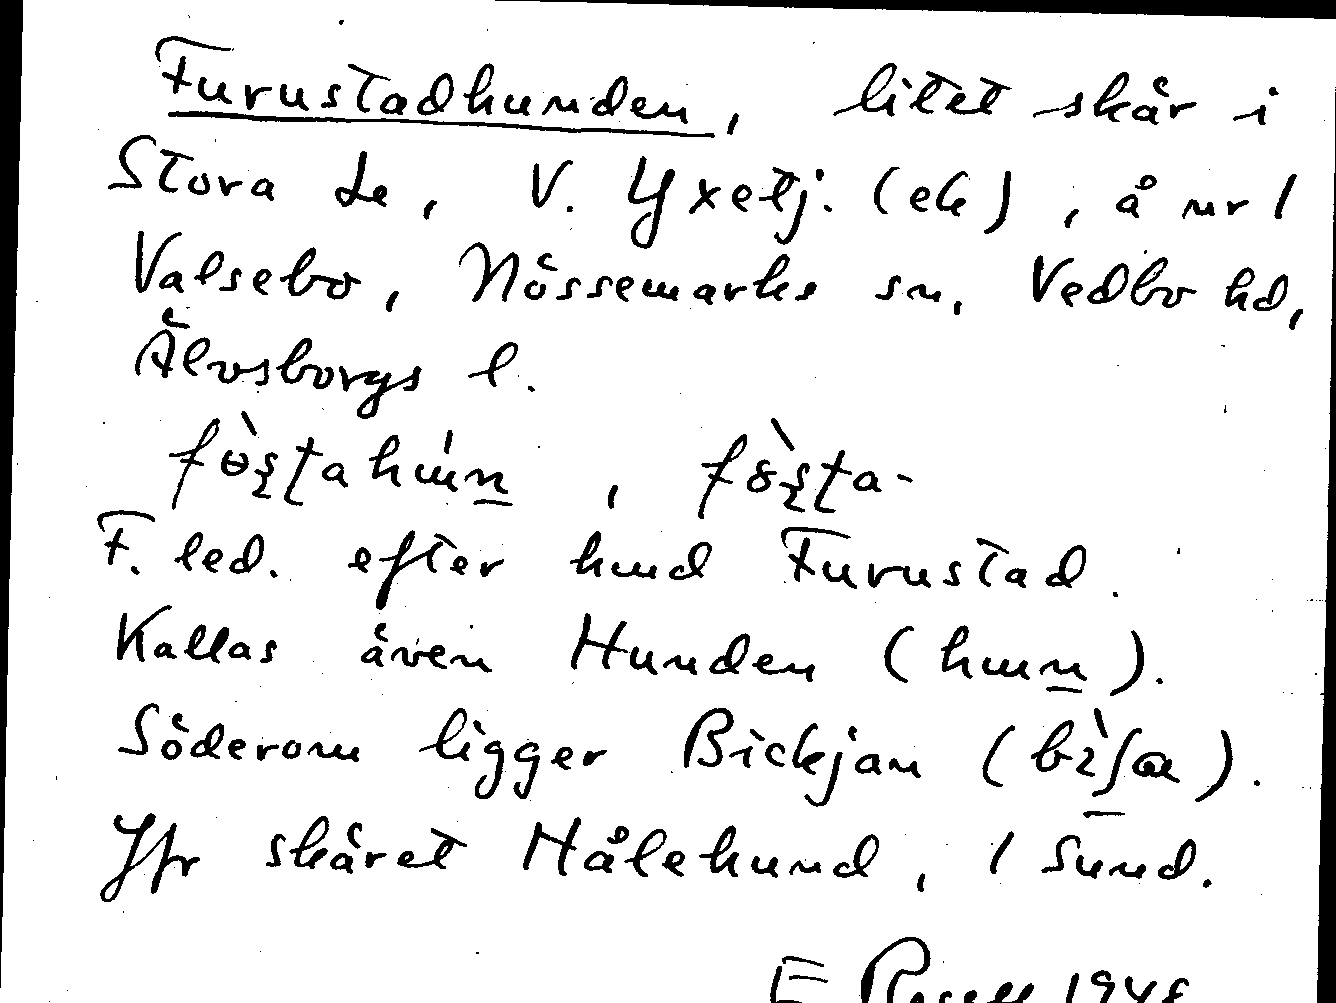 Furustadhunden, litet skär i
Stora Le, V. Yxetj. (ek), å nr 1
Valsebo, Nössemarks sn, Vedbo hd,
Älvsborgs l.
fɵ̀ʂʈahɯ́n̲, fòʂʈa-
F. led. efter hmd Furustad.
Kallas även Hunden (hɯn̲).
Söderom ligger Bickjan (bìʃa).
Jfr skäret Hålehund, 1 Sund.
E 1948